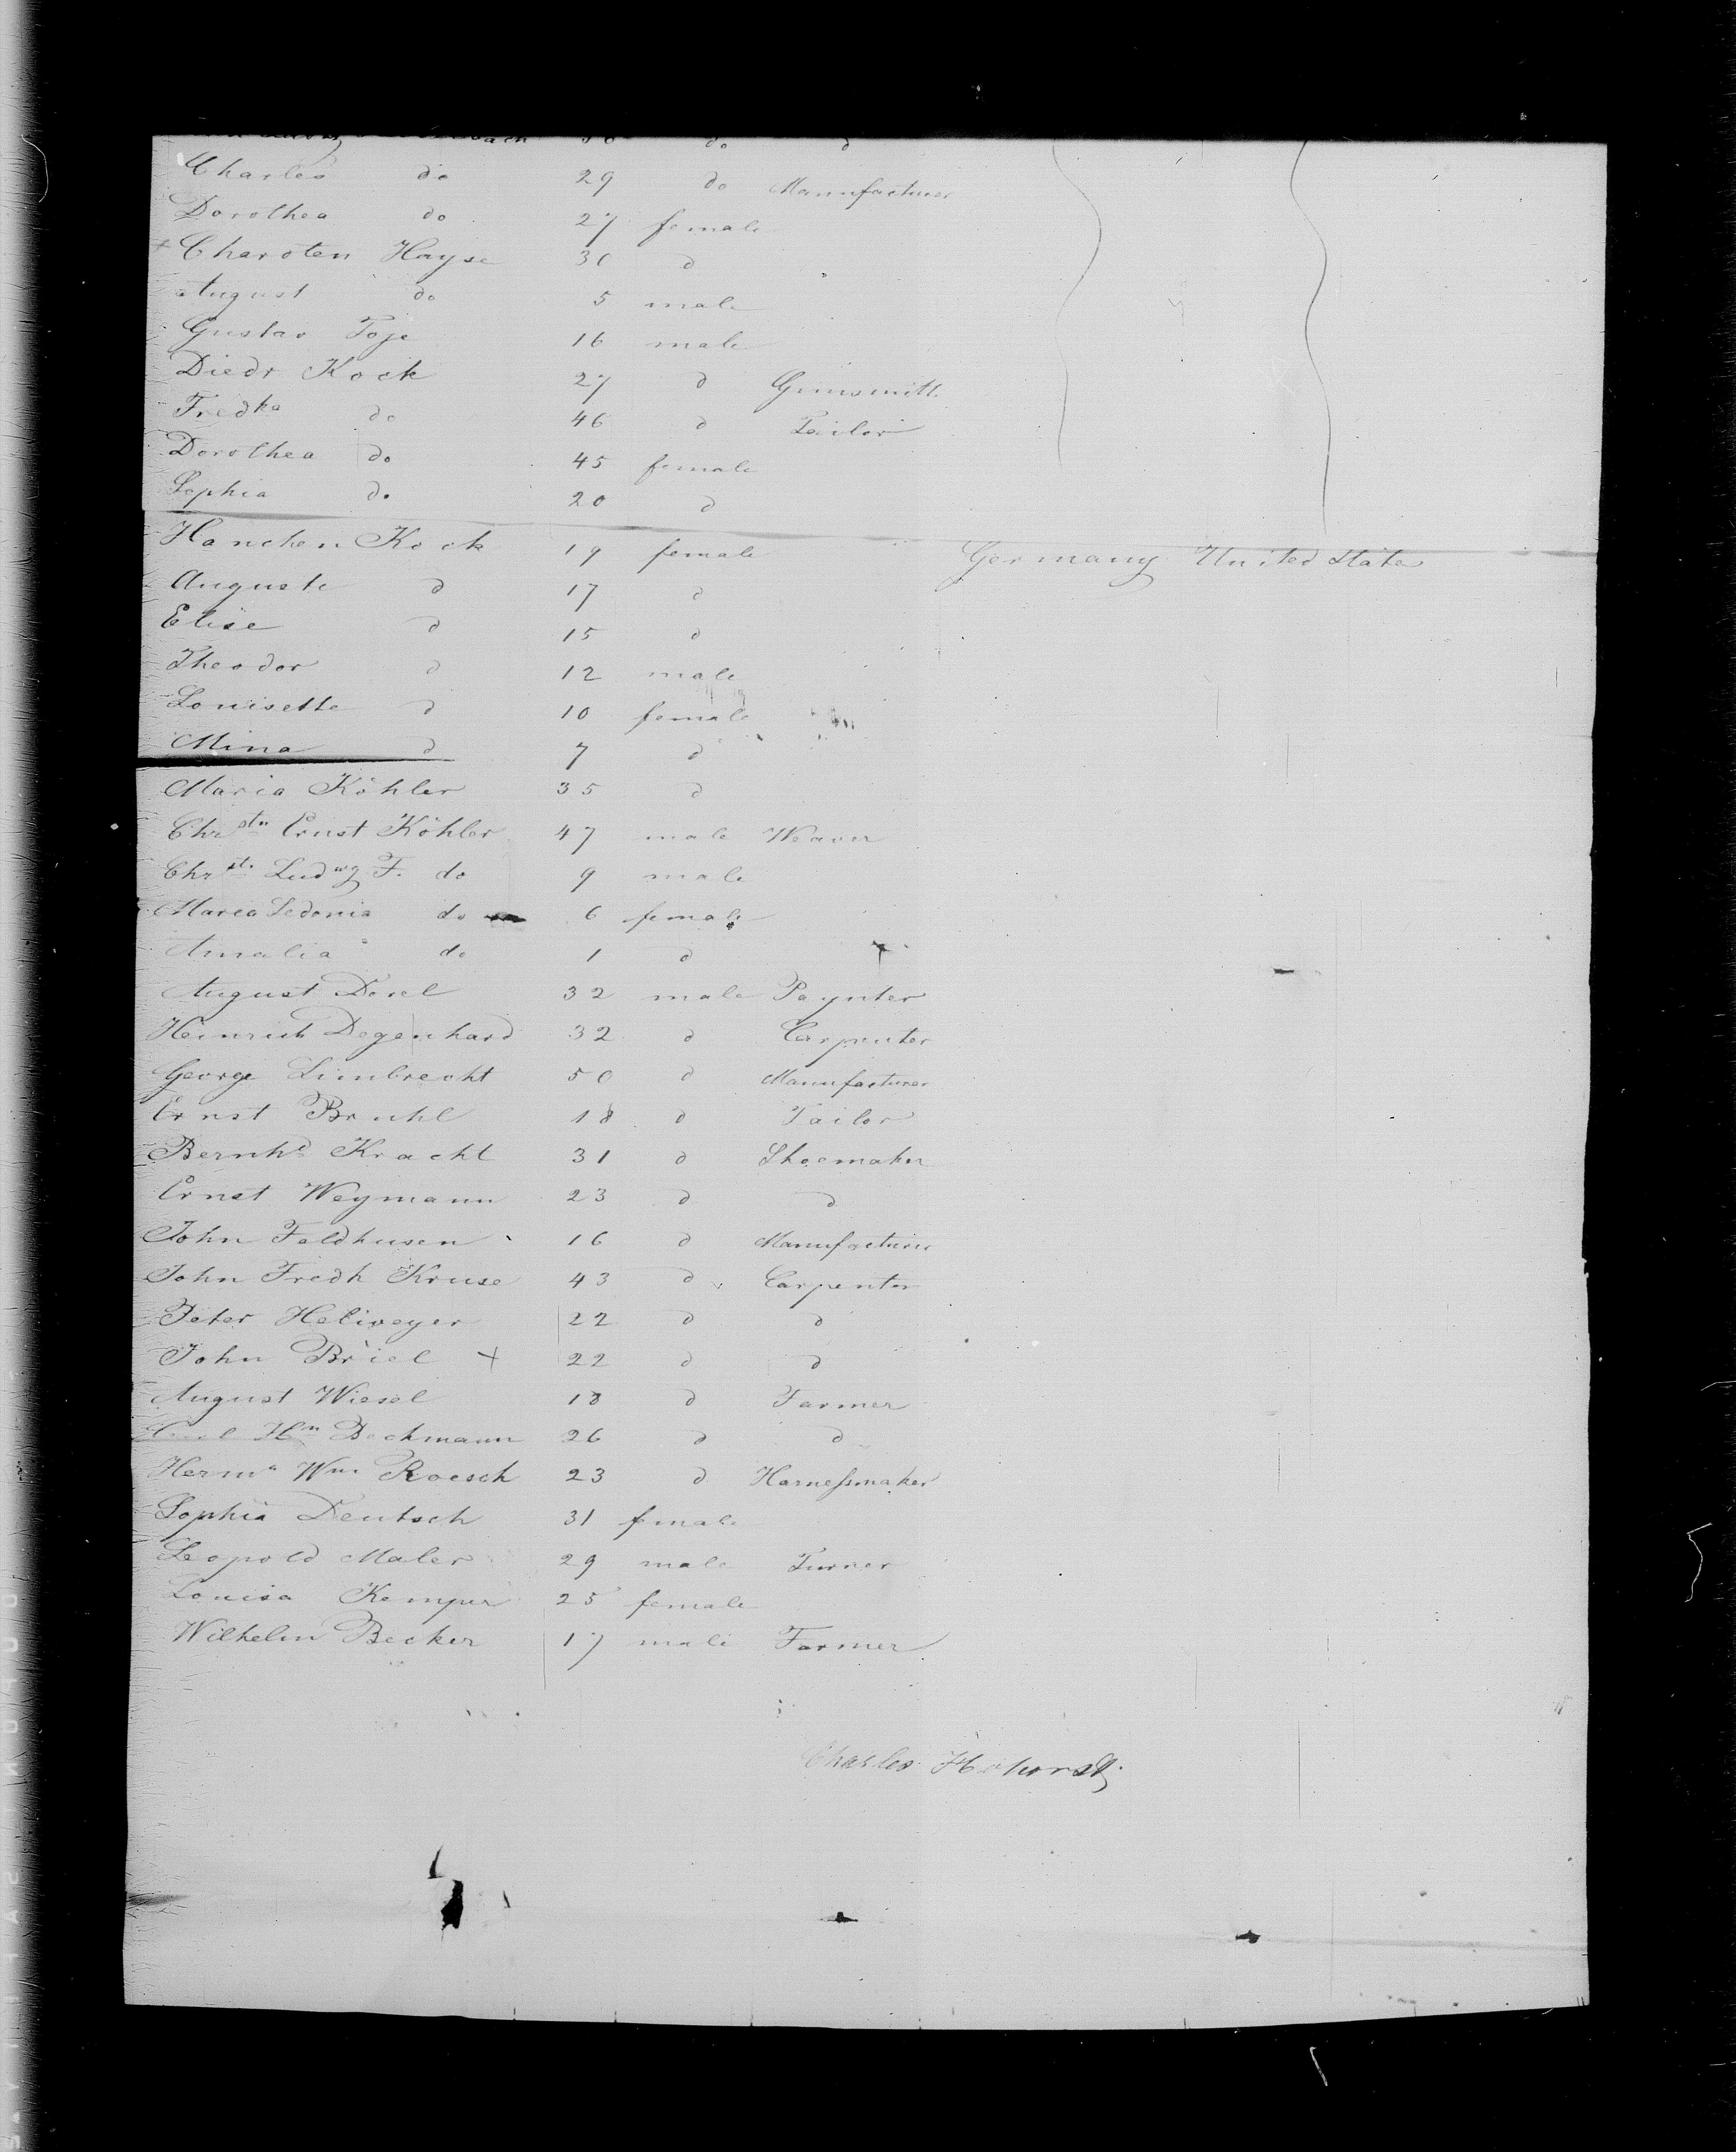 Charles do 29 do Manufacturer
Dorothea do 27 female
Charsten Hayse 30 d
August do 5 male
Gustav Toje 16 male
Diedr Kock 27 d Gunsmith
Fredka do 46 d Tailor
Dorothea do 45 female
Sophia do 20 d
Hanchen Kock 19 female Germany United States
Auguste d 17 d
Elise d 15 d
Theodor d 12 male
Louisette d 10 female
Mina d 7 d
Maria Köhler 35 d
Chrstn Ernst Köhler 47 male Weaver
Chrstn Ludwg F. do 9 male
Maria Sedonia do 6 female
Amalia do 1 d
August Desel 32 male Paynter
Heinrich Degenhard 32 d Carpenter
George Limbrecht 50 d Manufacturer
Ernst Bruhl 18 d Tailor
Bernhd Kracht 31 d Shoemaker
Ernst Weymann 23 d d
John Feldhusen 16 d Manufacturer
John Fredh Kruse 43 d Carpenter
Peter Heliweyer 22 d d
John Briel + 22 d d
August Wiesel 18 d Farmer
Hm Beckmann 26 d d
Herma Wm Roesch 23 d Harnessmaker
Sophia Deutsch 31 female
Leopold Maler 29 male Turner
Louisa Kemper 25 female
Wilhelm Becker 17 male Farmer
Charles